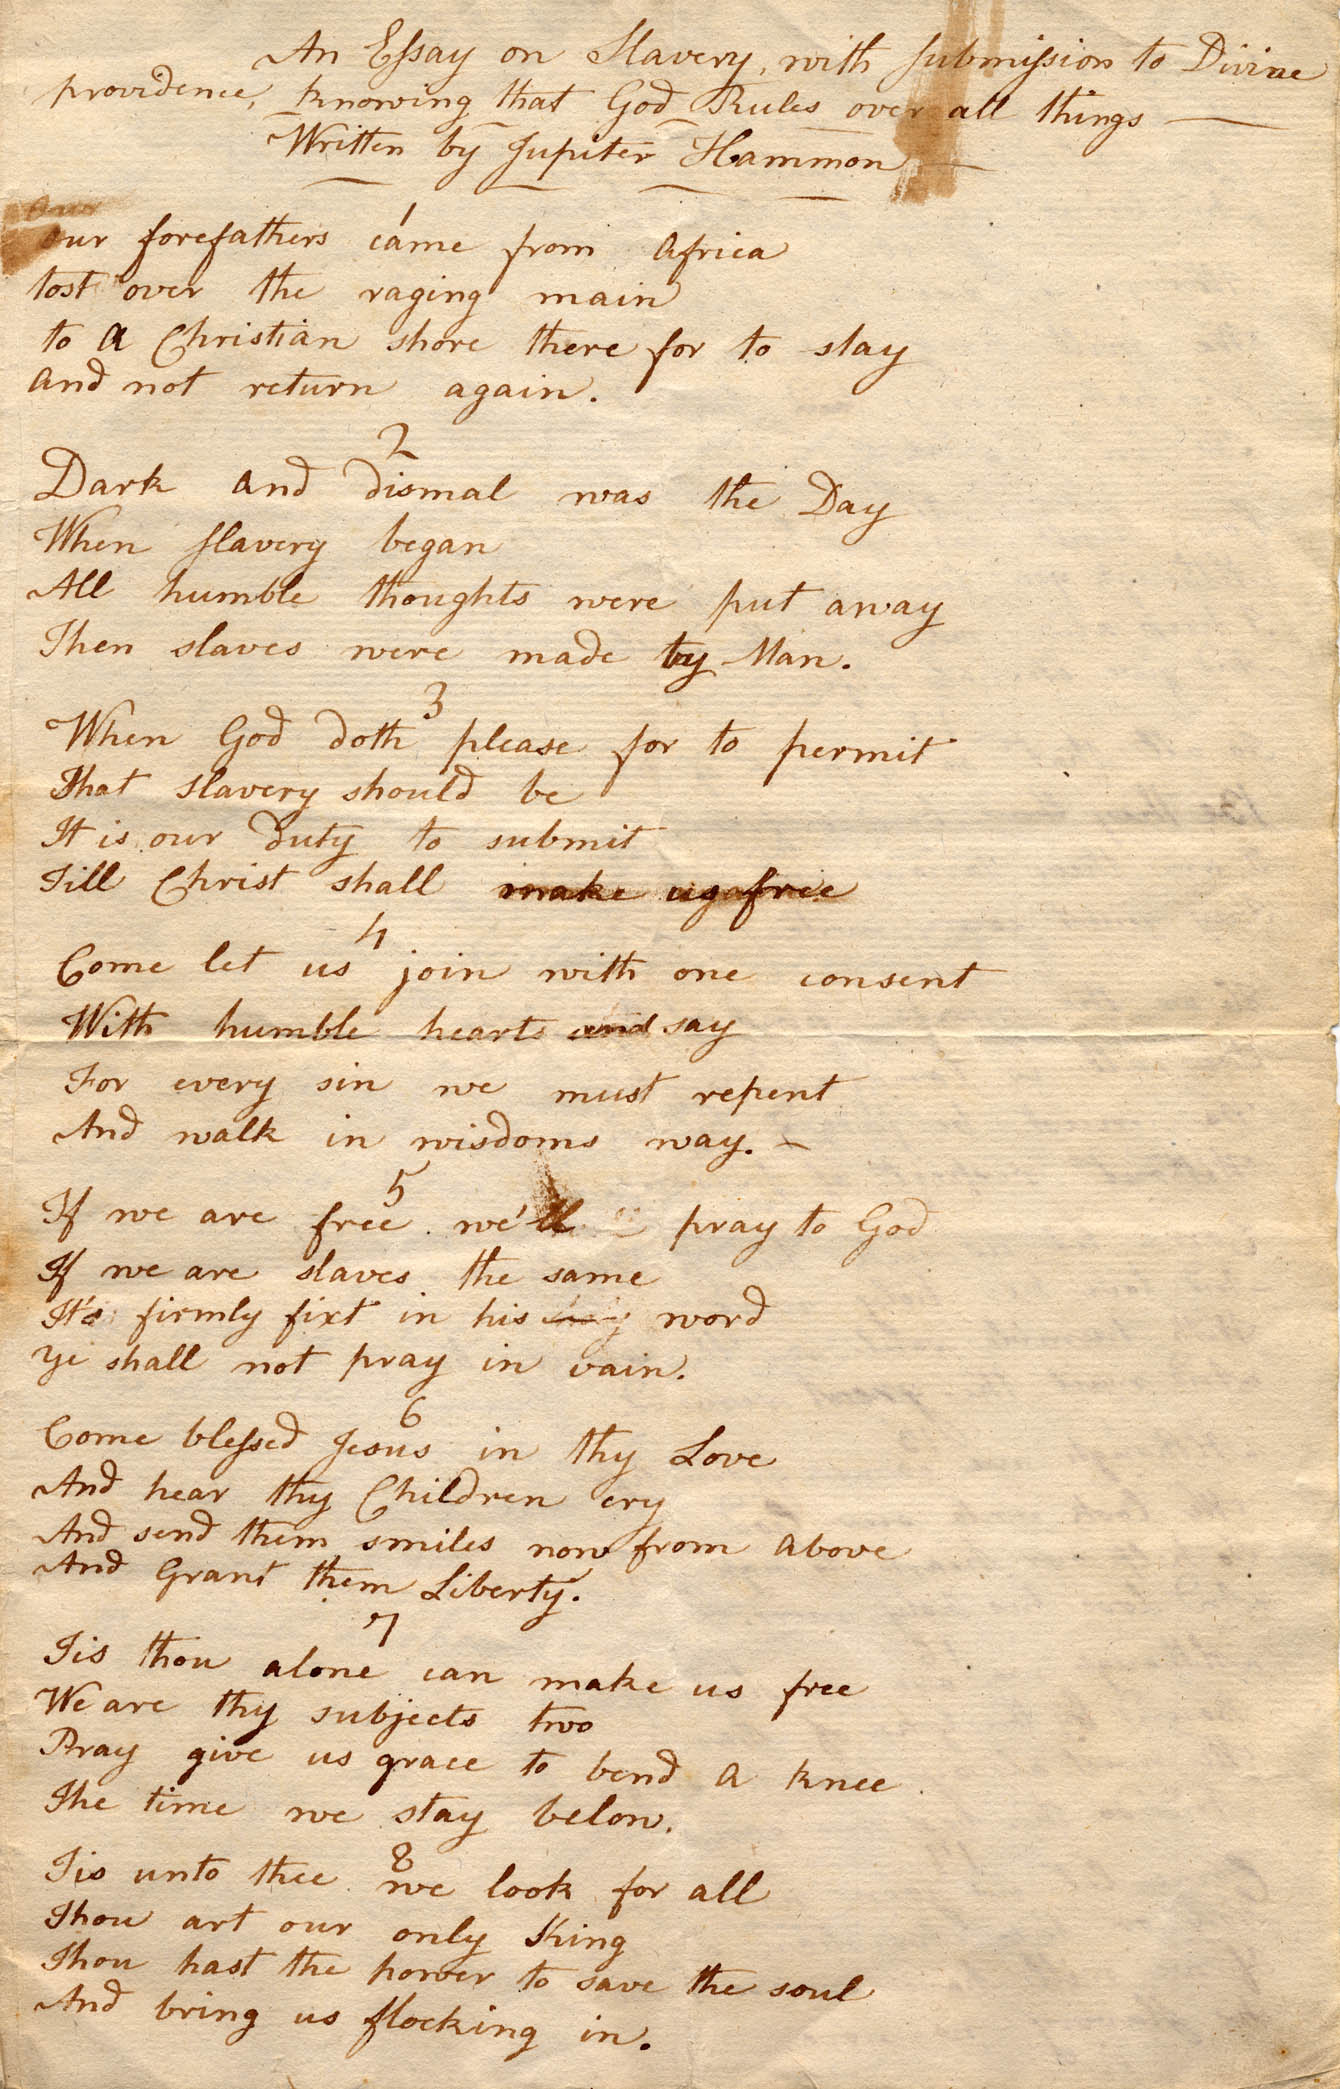 An Essay on Slavery, with submission to Divine
providence, knowing that God Rules over all things —
Written by Jupiter Hammon —
1
our forefathers came from africa
tost over the raging main
to a Christian shore there for to stay
and not return again.
2
Dark and dismal was the Day
When slavery began
All humble thoughts were put away
Then slaves were made by Man.
3
When God doth please for to permit
That slavery should be
It is our duty to submit
Till Christ shall make us free
4
Come let us join with one consent
With humble hearts and say
For every sin we must repent
And walk in wisdoms way. —
5
If we are free we'll pray to God
If we are slaves the same
It's firmly fixt in his word
ye shall not pray in vain.
6
Come blessed Jesus in thy Love
And hear thy Children cry
And send them smiles now from above
And Grant them Liberty.
7
Tis thou alone can make us free
We are thy subjects two
Pray give us grace to bend a knee
The time we stay below.
8
Tis unto thee we look for all
Thou art our only King
Thou hast the power to save the soul
And bring us flocking in.